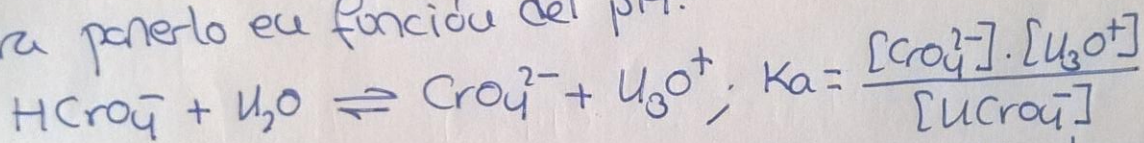 ra ponerlo en función del pH.
HCrO₄⁻ + H₂O ⇌ CrO₄²⁻ + H₃O⁺; Ka = [CrO₄²⁻]·[H₃O⁺] / [HCrO₄⁻]